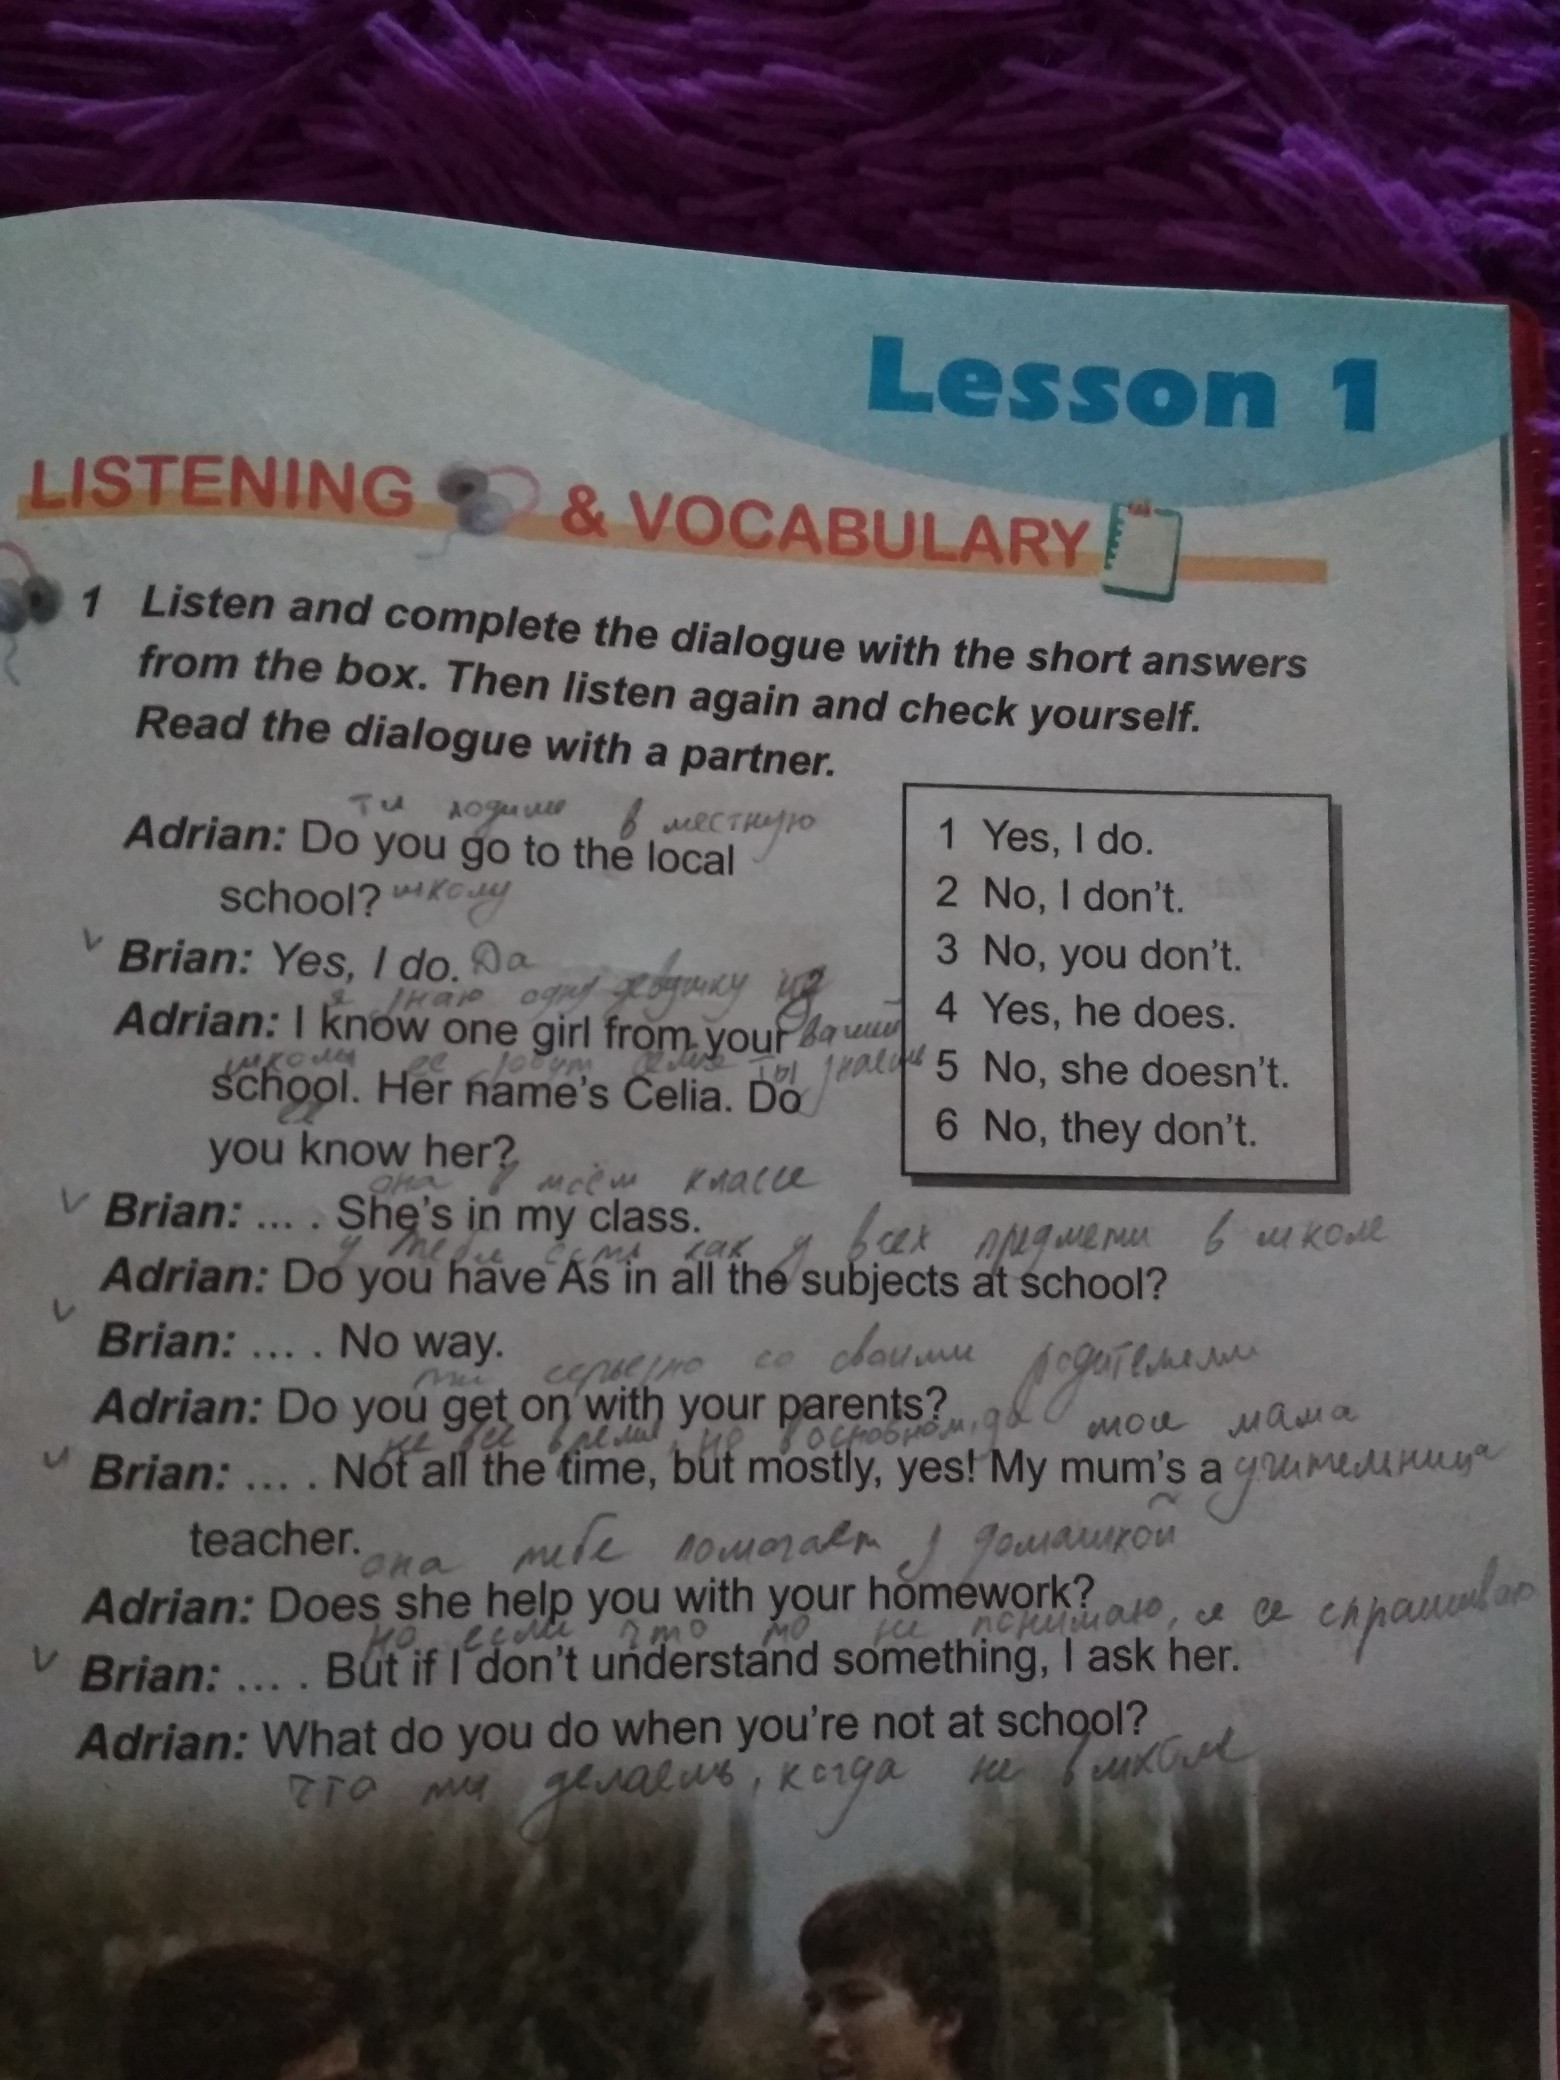 Lesson 1
LISTENING & VOCABULARY
1 Listen and complete the dialogue with the short answers
from the box. Then listen again and check yourself.
Read the dialogue with a partner.
ты ходишь в местную
Adrian: Do you go to the local
school? школу
Brian: Yes, I do. Да
я знаю одну девушку из
Adrian: I know one girl from your вашей
школы ее зовут Ты знаешь
school. Her name's Celia. Do
ее
you know her?
она в моём классе
Brian: ... . She's in my class.
у тебя есть как у всех предметы в школе
Adrian: Do you have As in all the subjects at school?
Brian: ... . No way.
ты серьезно со своими родителями
Adrian: Do you get on with your parents?
не все время, но в основном, да моя мама
Brian: ... . Not all the time, but mostly, yes! My mum's a учительница
teacher.
она тебе помогает с домашкой
Adrian: Does she help you with your homework?
но если что то не понимаю, я ее спрашиваю
Brian: ... . But if I don't understand something, I ask her.
Adrian: What do you do when you're not at school?
что ты делаешь, когда не в школе
1 Yes, I do.
2 No, I don't.
3 No, you don't.
4 Yes, he does.
5 No, she doesn't.
6 No, they don't.